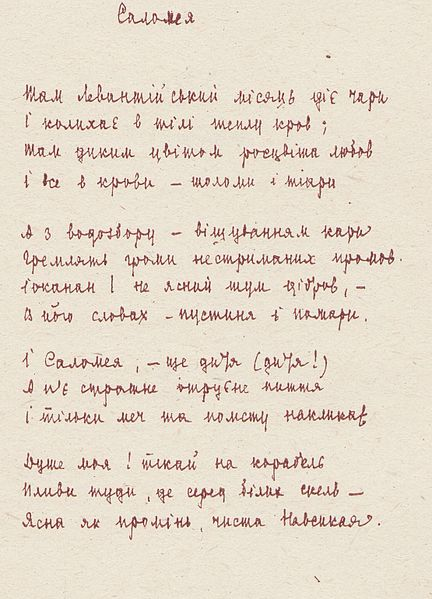 Саломея
Там левантійський місяць діє чари
І колихає в тілі теплу кров;
Там диким цвітом росцвіта любов
І все в крови – шоломи і тіари
А з водозбору – віщуванням кари
Гремлять громи нестриманих промов.
Іоканан! не ясний шум дібров, –
В його словах – пустиня і пожари.
І Саломея, – ще дитя (дитя!)
А п'є страшне отруєне пиття
І тільки меч та помсту накликає
Душе моя! тікай на корабель
Пливи туди, де серед білих скель –
Ясна як промінь, чиста Навсикая.